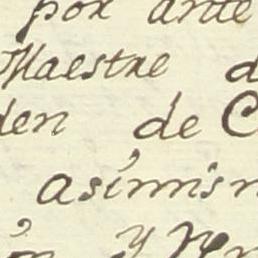 por ante
Maestre d
den de C
asímis
y Ve